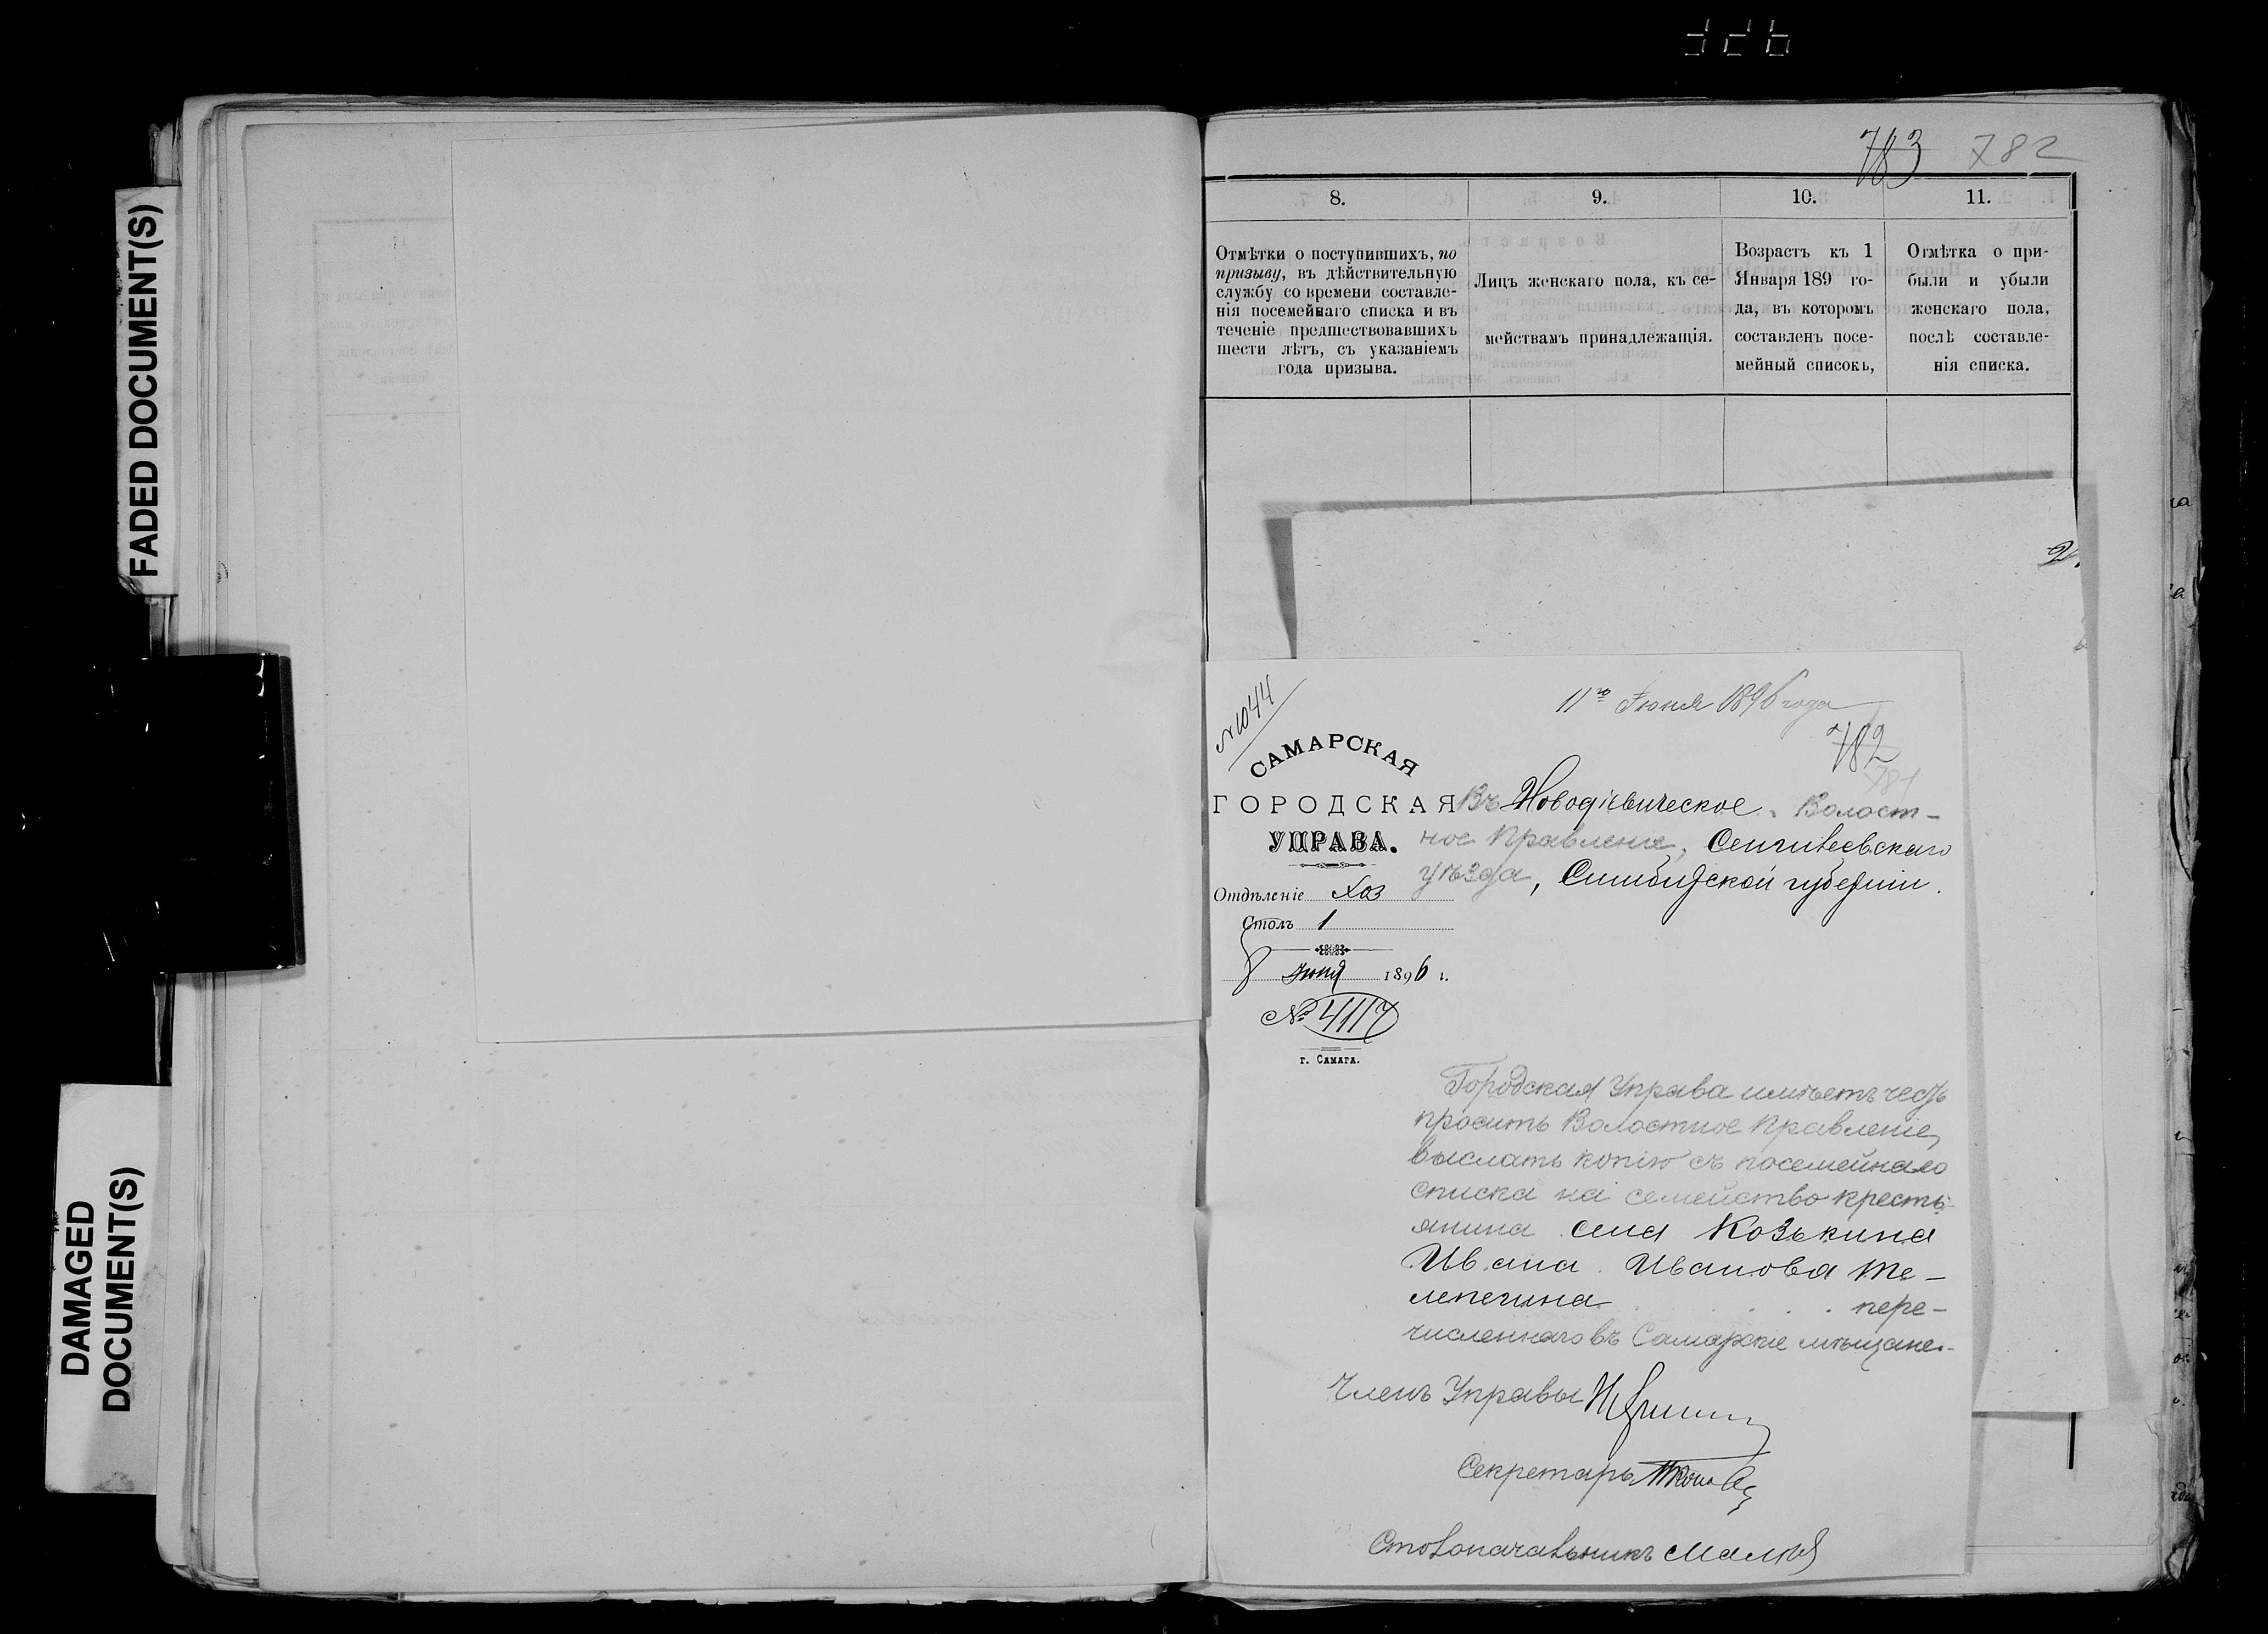 FADED DOCUMENT(S)
DAMAGED
DOCUMENT(S)
783 782
8.
9.
10.
11.
Отмѣтки о поступившихъ, по
призыву, въ дѣйствительную
службу со времени составле-
нія посемейнаго списка и въ
теченіе предшествовавшихъ
шести лѣтъ, съ указаніемъ
года призыва.
Лицъ женскаго пола, къ се-
мействамъ принадлежащія.
Возрастъ къ 1
Января 189 го-
да, въ которомъ
составленъ посе-
мейный списокъ,
Отмѣтка о при-
были и убыли
женскаго пола,
послѣ составле-
нія списка.
№ 1044
11го Іюня 1896 года
782
781
САМАРСКАЯ
ГОРОДСКАЯ
УПРАВА.
Отдѣленіе Хоз
Столъ 1
8 Іюня 1896 г.
№ 4117
г. САМАРА.
Въ Новодѣвическое Волост-
ное Правленіе, Сенгилеевскаго
уѣзда, Симбирской губерніи.
Городская Управа имѣетъ честь
просить Волостное Правленіе,
выслать копію съ посемейнаго
списка на семейство кресть-
янина села Козькина
Ивана Иванова Те-
лепегина пере-
численнаго въ Самарскіе мѣщане.
Членъ Управы
Секретарь
Столоначальникъ